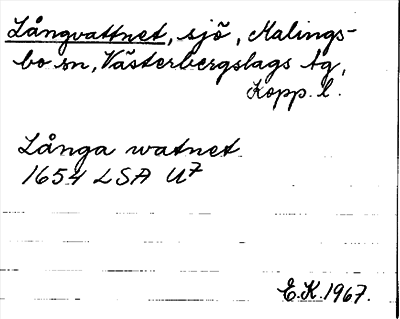 Långvattnet, sjö, Malings-
bo sn, Västerbergslags tg,
Kopp. l.
Långa watnet
1654 LSA U7
E.K. 1967.